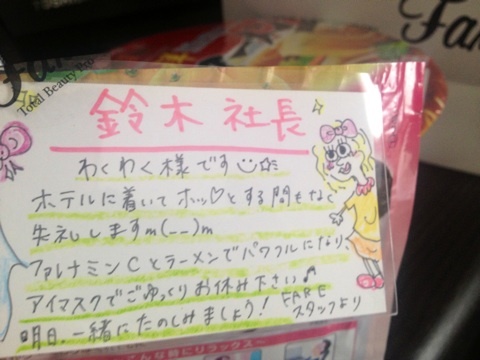 Total Beauty
Fa
鈴木 社長
わくわく様です
ホテルに着いてホッ♡とする間もなく
失礼しますm(__)m
ファレナミンCとラーメンでパワフルになり、
アイマスクでごゆっくりお休み下さい♪
明日、一緒にたのしみましょう! FARE
スタッフより